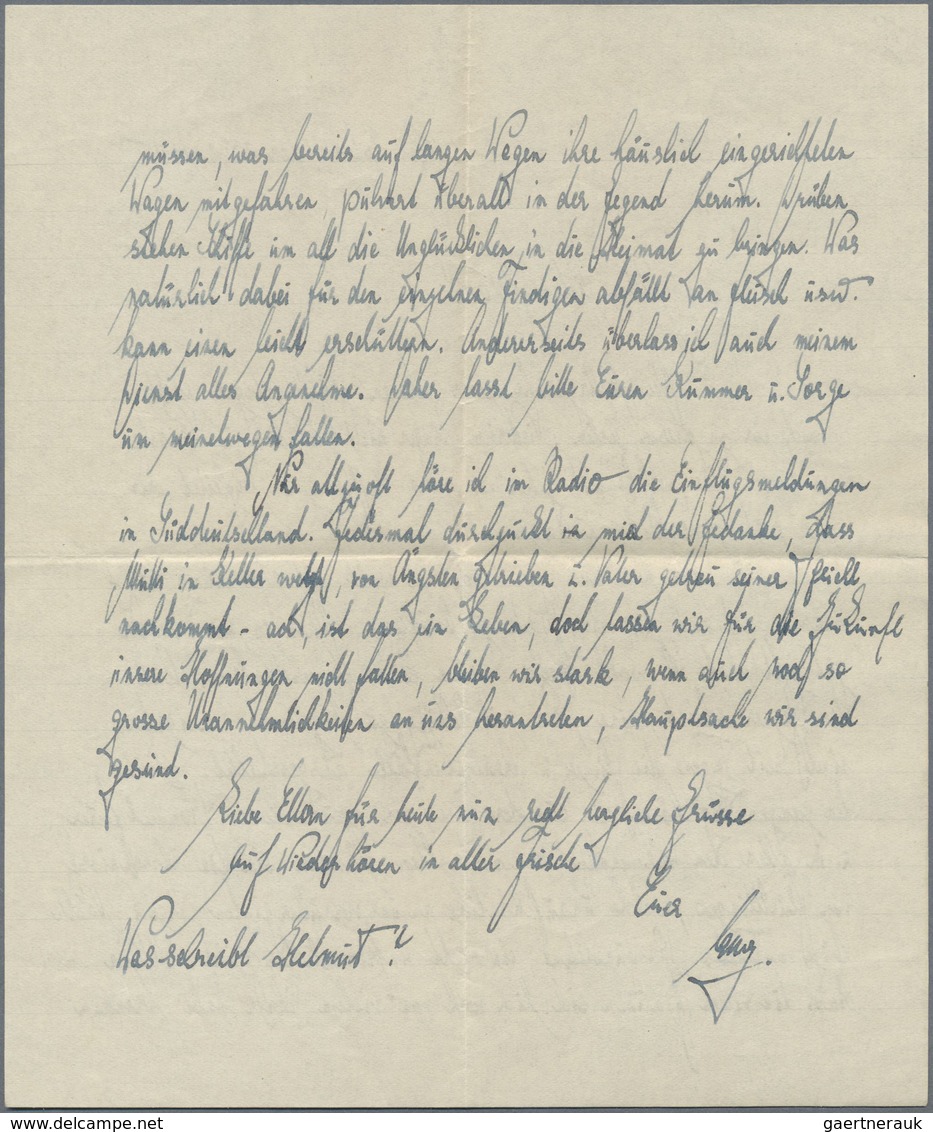 müssen, was bereits auf langen Wegen ihre häuslich eingerichteten
Wagen mitgefahren, überall in der Gegend herum. Drüben
stehen Schiffe um all die Unglücklichen in die Heimat zu bringen. Was
natürlich dabei für den einzelnen Findigen abfällt an Fleisch usw.
kann einen leicht erschüttern. Andererseits überlass ich auch meinem
Dienst alles Angenehme. Daher lasst bitte Euren Kummer u. Sorge
um meinetwegen fallen.
Nur allzuoft höre ich im Radio die Einflugsmeldungen
in Süddeutschland. Jedesmal durchzuckt in mich der Gedanke, dass
Mutti in Keller, von Ängsten getrieben u. Vater getreu seiner Pflicht
nachkommt - ach, ist das ein Leben, doch lassen wir für die Zukunft
unsere Hoffnungen nicht fallen, bleiben wir stark, wenn auch noch so
grosse Unannehmlichkeiten an uns herantreten, Hauptsache wir sind
gesund.
Liebe Eltern für heute nun recht herzliche Grüsse
Auf Wiederhören in alter Frische
Euer
Was schreibt Helmut?
gaertnerauk